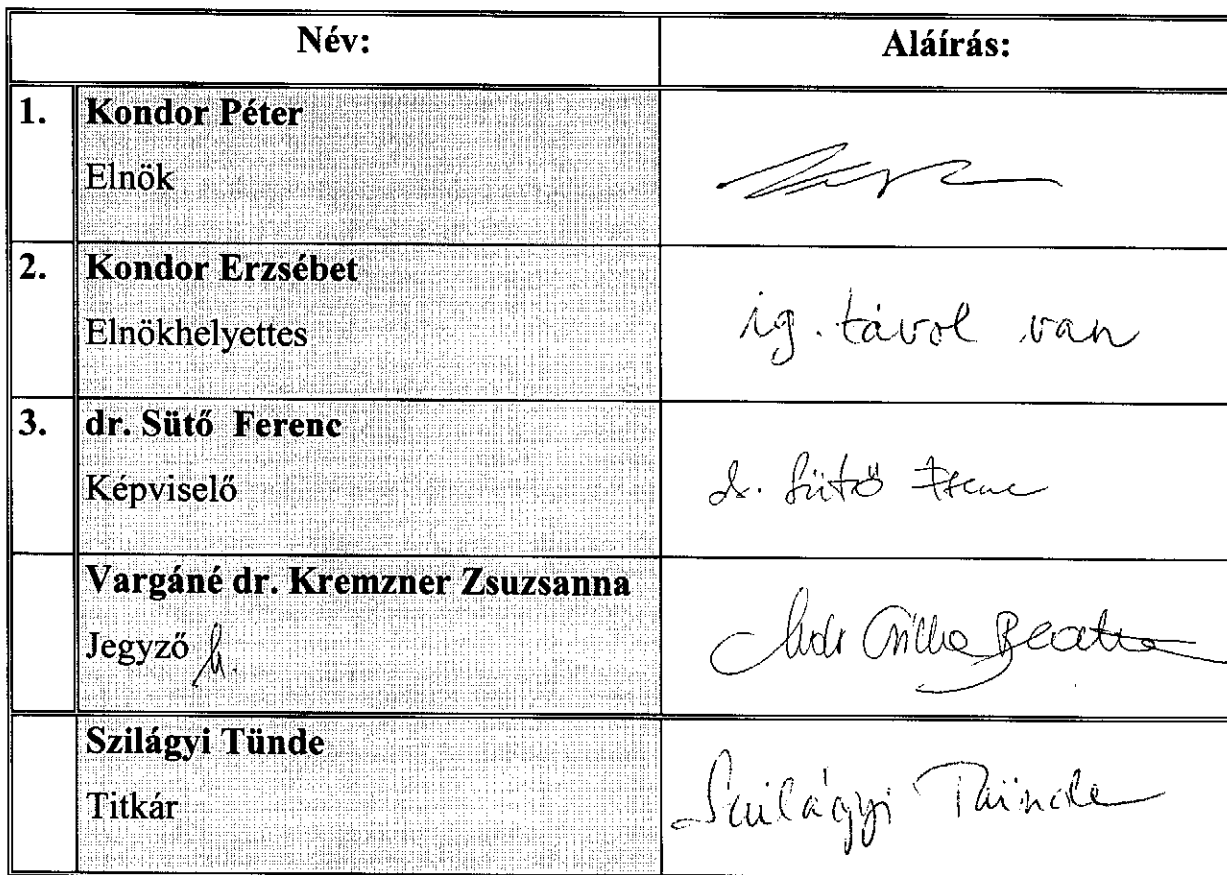 Név: Aláírás:
1. Kondor Péter
Elnök
2. Kondor Erzsébet
Elnökhelyettes ig. távol van
3. dr. Sütő Ferenc
Képviselő dr. Sütő Ferenc
Vargáné dr. Kremzner Zsuzsanna
Jegyző h. Beatrix
Szilágyi Tünde
Titkár Szilágyi Tünde